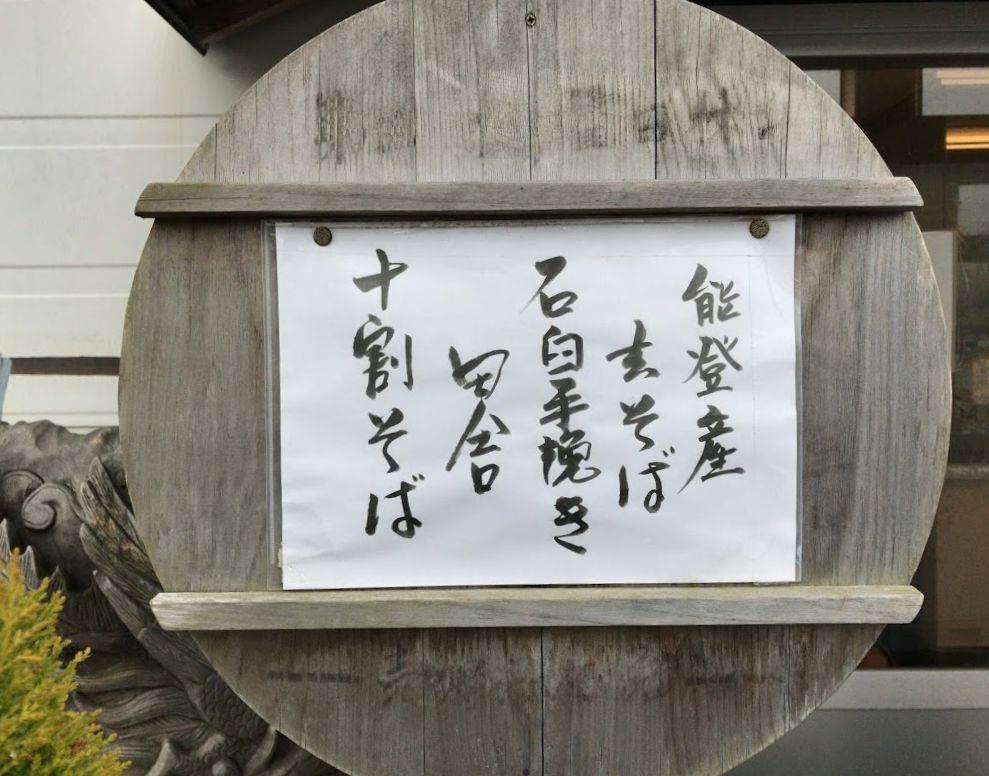 能登産
玄そば
石臼手挽き
田舎
十割そば